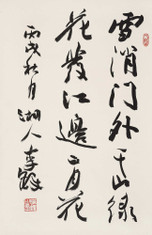 雪消门外千山绿
花发江边二月花
丙戌秋月
湖人李